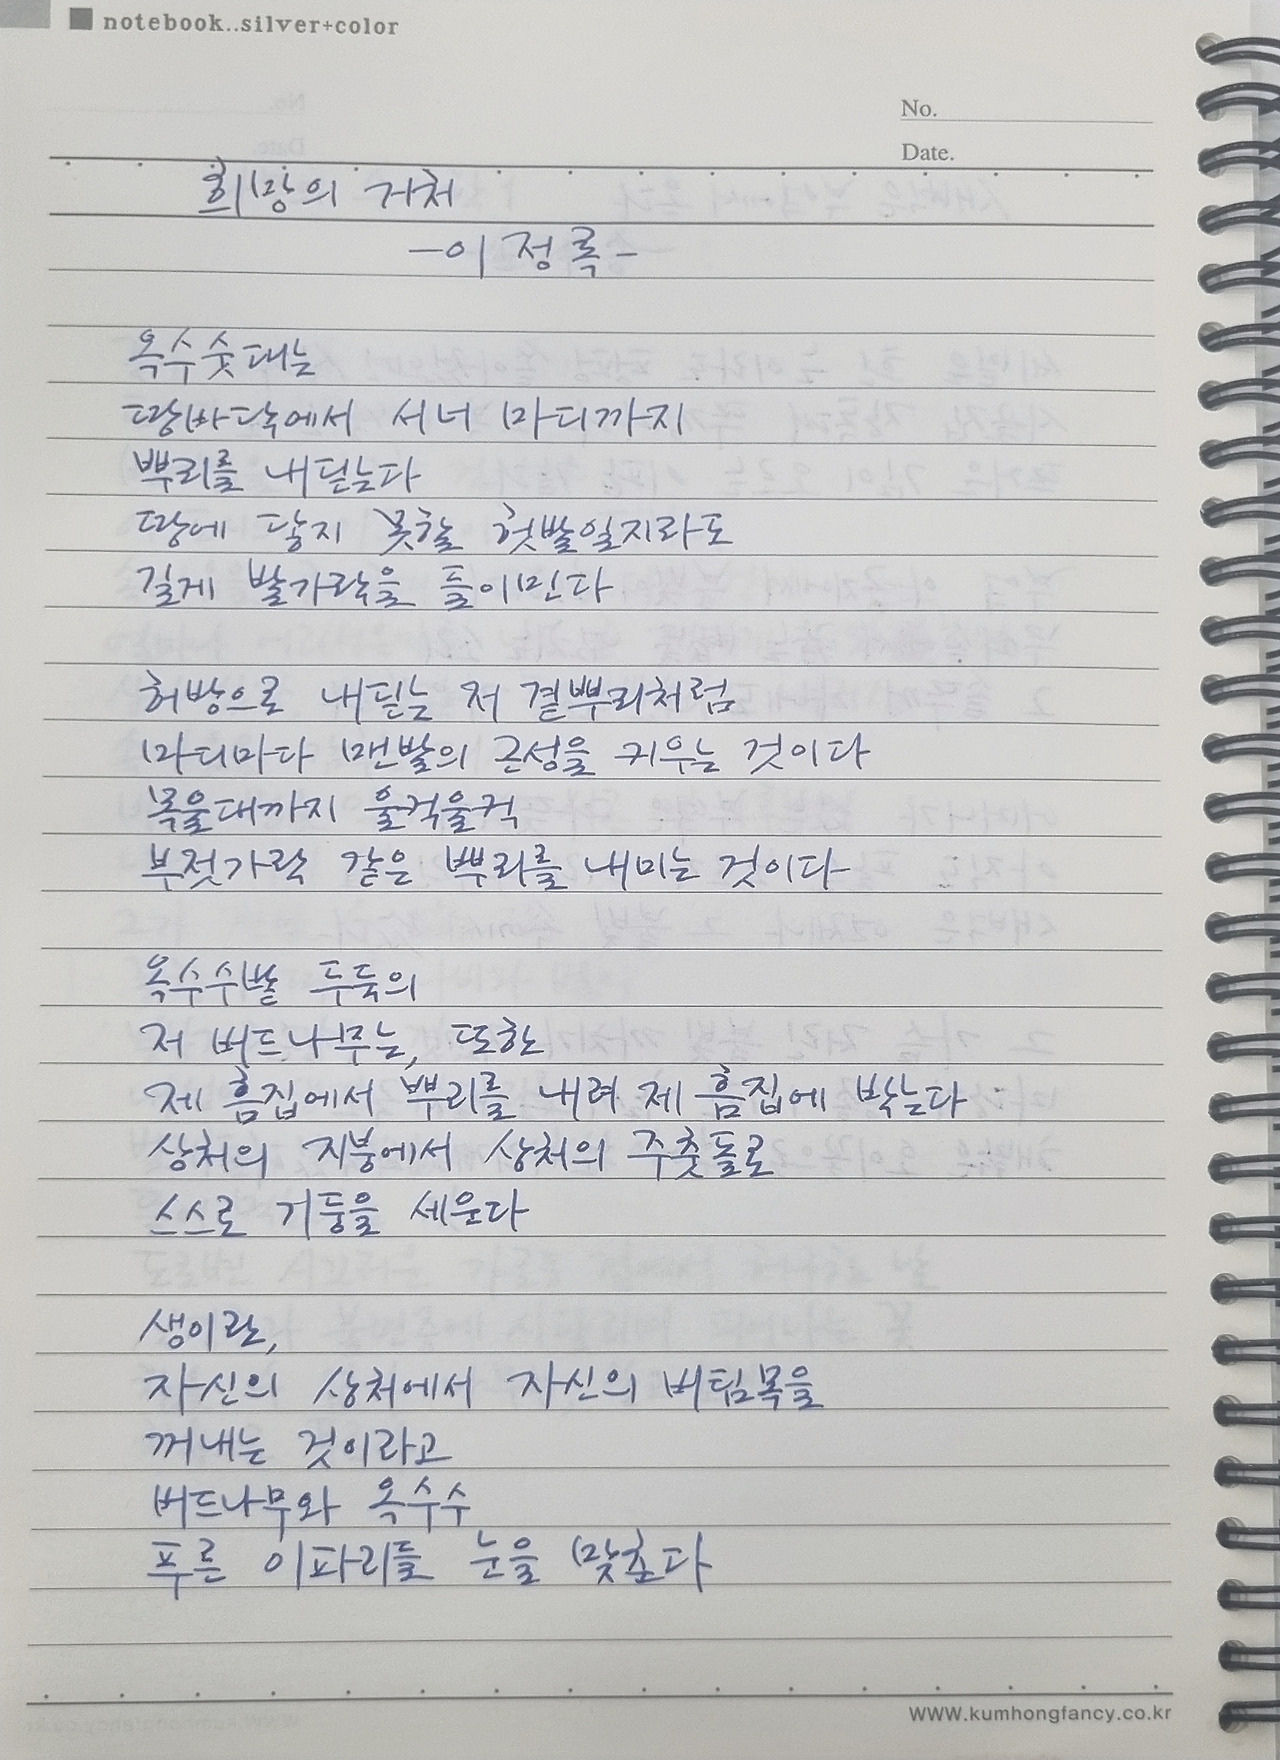 notebook..silver+color
No.
Date.
희망의 거처
-이정록-
옥수숫대는
땅바닥에서 서너 마디까지
뿌리를 내딛는다
땅에 닿지 못할 헛발일지라도
길게 발가락을 들이민다
허방으로 내딛는 저 곁뿌리처럼
마디마다 맨발의 근성을 키우는 것이다
목울대까지 울컥울컥
부젓가락 같은 뿌리를 내미는 것이다
옥수수밭 두둑의
저 버드나무는, 또한
제 흠집에서 뿌리를 내려 제 흠집에 박는다
상처의 지붕에서 상처의 주춧돌로
스스로 기둥을 세운다
생이란,
자신의 상처에서 자신의 버팀목을
꺼내는 것이라고
버드나무와 옥수수
푸른 이파리들 눈을 맞춘다
WWW.kumhongfancy.co.kr